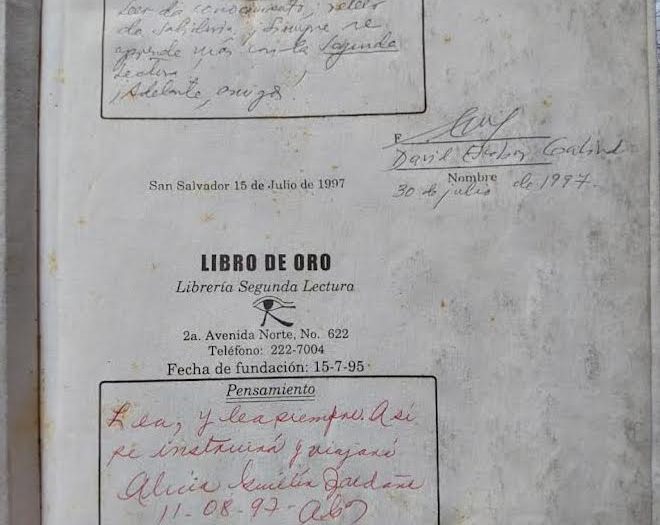 Leer da conocimiento, releer
da sabiduría, siempre se
aprende más con la Segunda
Lectura.
¡Adelante, amigos!
F.
David Escobar Galindo
San Salvador 15 de Julio de 1997
Nombre
30 de julio de 1997.
LIBRO DE ORO
Librería Segunda Lectura
2a. Avenida Norte, No. 622
Teléfono: 222-7004
Fecha de fundación: 15-7-95
Pensamiento
Lea, y lea siempre. Así
se instruirá y viajará
Alicia
11-08-97-